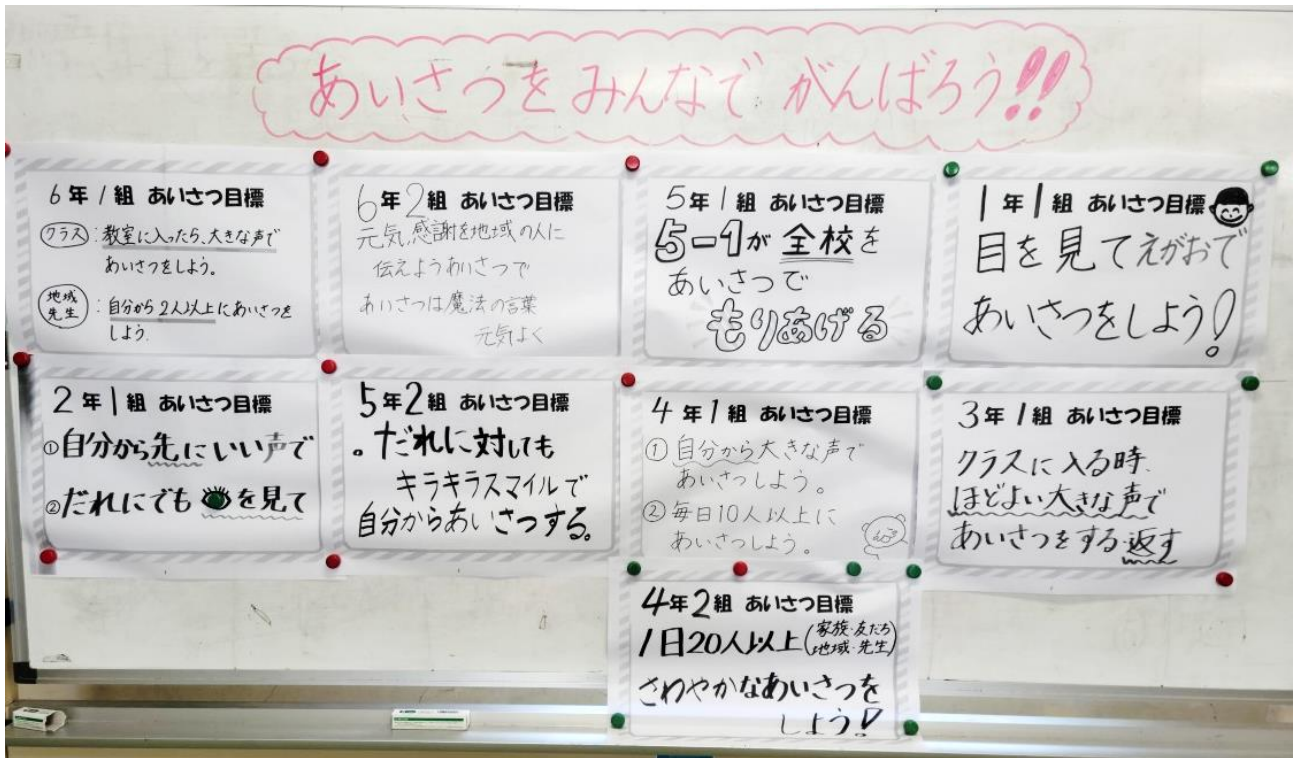 あいさつをみんなでがんばろう!!
6年1組 あいさつ目標
クラス:教室に入ったら、大きな声で
あいさつをしよう。
地域
先生:自分から2人以上にあいさつを
しよう.
6年2組 あいさつ目標
元気,感謝を地域の人に
伝えようあいさつで
あいさつは魔法の言葉
元気よく
5年1組 あいさつ目標
5-1が全校を
あいさつで
もりあげる
1年1組 あいさつ目標
目を見てえがおで
あいさつをしよう!
2年1組 あいさつ目標
①自分から先にいい声で
②だれにでも を見て
5年2組 あいさつ目標
。だれに対しても
キラキラスマイルで
自分からあいさつする。
4年1組 あいさつ目標
①自分から大きな声で
あいさつしよう。
②毎日10人以上に
あいさつしよう。
3年1組 あいさつ目標
クラスに入る時、
ほどよい大きな声で
あいさつをする・返す
4年2組 あいさつ目標
1日20人以上(家族・友だち
地域・先生)
さわやかなあいさつを
しよう!